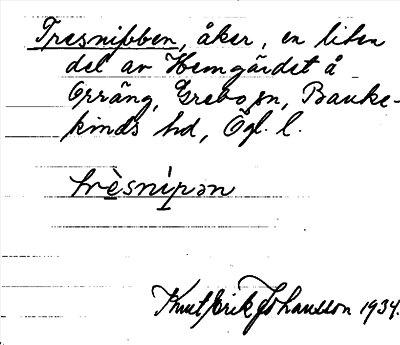 Tresnibben, åker, en liten
del av Hemgärdet å
Orräng, Grebo sn, Banke-
kinds hd, Ögl. l.
trèsnipən
Knut Erik Johansson 1934.